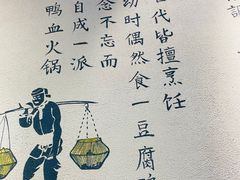 代皆擅烹饪
幼时偶然食一豆腐
念不忘而
自成一派
鸭血火锅